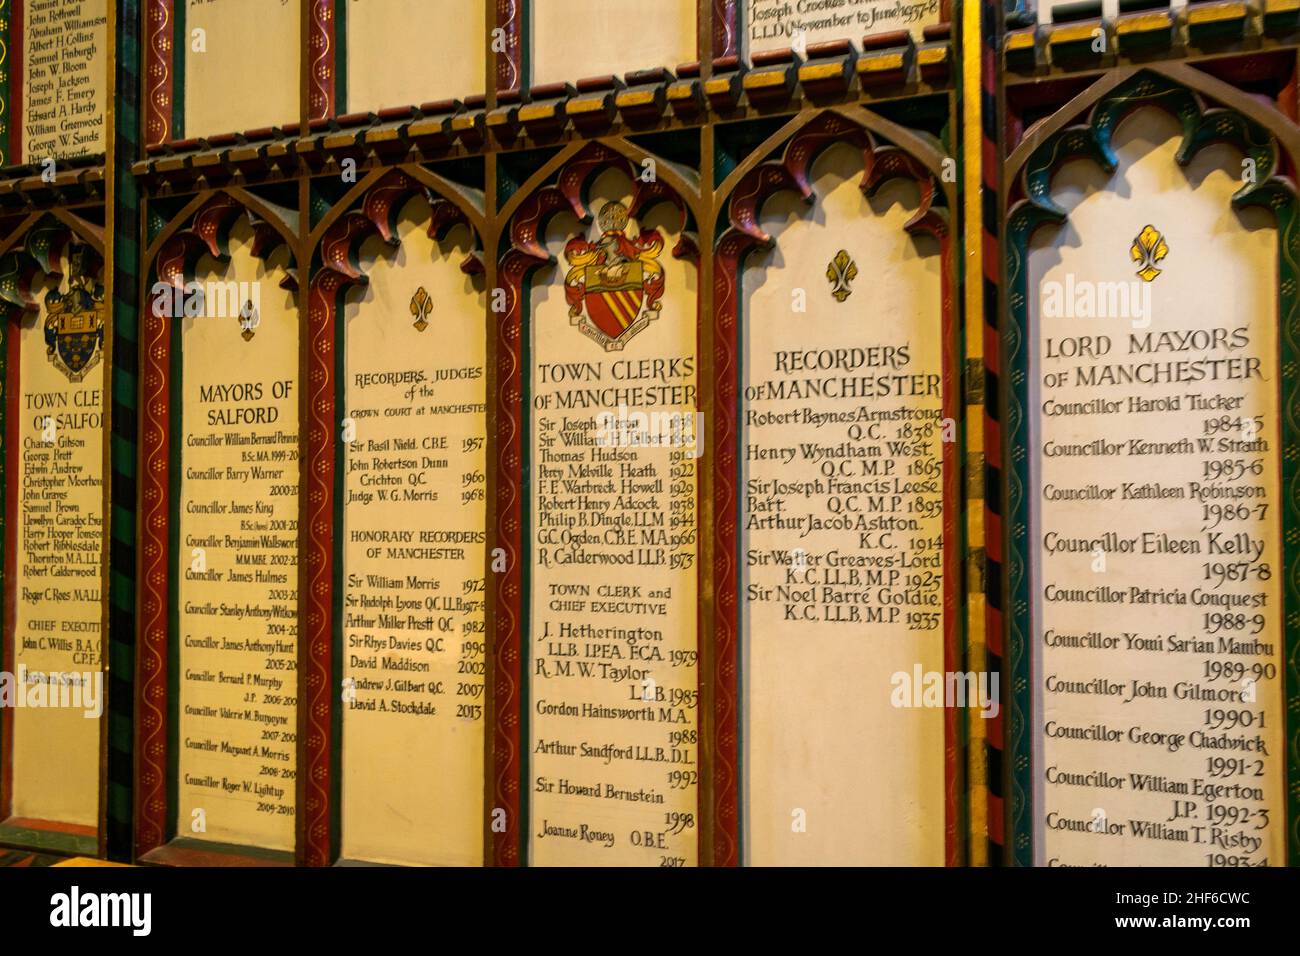 Samuel
John Rothwell
Abraham Williamson
Albert H. Collins
Samuel Finburgh
John W. Bloom
Joseph Jackson
James F. Emery
Edward A. Hardy
William Greenwood
George W. Sands
Ashcroft
Joseph Crookes
LL.D (November to June) 1937-8
TOWN CLE
OF SALFOR
Charles Gibson
George Brett
Edwin Andrew
Christopher Moorhou
John Graves
Samuel Brown
Llewellyn Caradoc Evan
Harry Hooper Tomson
Robert Ribblesdale
Thornton M.A., LL.
Robert Calderwood
Roger C. Rees M.A., LL
CHIEF EXECUTI
John C. Willis B.A.
C.P.F.A
Barbara Spicer
MAYORS OF
SALFORD
Councillor William Bernard Pennin
B.Sc. M.A. 1999-20
Councillor Barry Warner
2000-20
Councillor James King
B.Sc. (hons) 2001-20
Councillor Benjamin Wallswort
M.M. M.B.E. 2002-20
Councillor James Hulmes
2003-20
Councillor Stanley Anthony Witkow
2004-20
Councillor James Anthony Hunt
2005-20
Councillor Bernard P. Murphy
J.P. 2006-200
Councillor Valerie M. Burgoyne
2007-200
Councillor Margaret A. Morris
2008-200
Councillor Roger W. Lightup
2009-2010
RECORDERS, JUDGES
of the
CROWN COURT at MANCHESTER
Sir Basil Nield. C.B.E. 1957
John Robertson Dunn
Crichton Q.C. 1960
Judge W. G. Morris 1968
HONORARY RECORDERS
OF MANCHESTER
Sir William Morris 1972
Sir Rudolph Lyons Q.C. LL.B. 1977-8
Arthur Miller Prestt Q.C. 1982
Sir Rhys Davies Q.C. 1990
David Maddison 2002
Andrew J. Gilbart Q.C. 2007
David A. Stockdale 2013
TOWN CLERKS
OF MANCHESTER
Sir Joseph Heron 1838
Sir William H. Talbot 1890
Thomas Hudson 1910
Percy Melville Heath 1922
F. E. Warbreck Howell 1929
Robert Henry Adcock 1938
Philip B. Dingle, LL.M 1944
G.C. Ogden, C.B.E. M.A. 1966
R. Calderwood LL.B. 1973
TOWN CLERK and
CHIEF EXECUTIVE
J. Hetherington
LL.B. I.P.F.A. F.C.A. 1979
R. M. W. Taylor
LL.B. 1985
Gordon Hainsworth M.A.
1988
Arthur Sandford LL.B., D.L.
1992
Sir Howard Bernstein
1998
Joanne Roney O.B.E.
2017
RECORDERS
OF MANCHESTER
Robert Baynes Armstrong
Q.C. 1838
Henry Wyndham West.
Q.C. M.P. 1865
Sir Joseph Francis Leese.
Batt. Q.C. M.P. 1893
Arthur Jacob Ashton.
K.C. 1914
Sir Walter Greaves-Lord
K.C. LL.B, M.P. 1925
Sir Noel Barré Goldie.
K.C, LL.B, M.P. 1935
LORD MAYORS
OF MANCHESTER
Councillor Harold Tucker
1984-5
Councillor Kenneth W. Strath
1985-6
Councillor Kathleen Robinson
1986-7
Councillor Eileen Kelly
1987-8
Councillor Patricia Conquest
1988-9
Councillor Yomi Sarian Mambu
1989-90
Councillor John Gilmore
1990-1
Councillor George Chadwick
1991-2
Councillor William Egerton
J.P. 1992-3
Councillor William T. Risby
1993-4
alamy
Image ID: 2HF6CWC
www.alamy.com